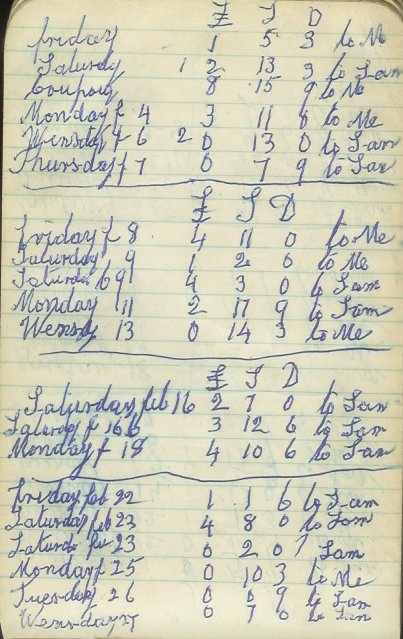 £ S D
friday 1 5 3 to Me
Saturdy 1 2 13 3 to Sam
Coupony 8 15 9 to Me
Monday f 4 3 11 8 to Me
Wensdy f 6 20 13 0 to Sam
Thursday f 7 0 7 9 to Sam
£ S D
friday f 8 4 11 0 to Me
Saturday 9 1 2 0 to Me
Saturda 9 4 3 0 to Sam
Monday 11 2 17 9 to Sam
Wensdy 13 0 14 3 to Me
£ S D
Saturday feb 16 2 7 0 to Sam
Saturday f 16 3 12 6 to Sam
Monday f 18 4 10 6 to Sam
friday feb 22 1 1 6 to Sam
Saturday feb 23 4 8 0 to Sam
Saturda feb 23 0 2 0 Sam
Monday f 25 0 10 3 to Me
Tuesday 26 0 0 9 to Sam
Wensday 27 0 7 0 to Sam